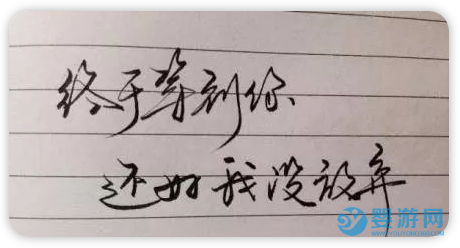 终于等到你
还好我没放弃
婴游网